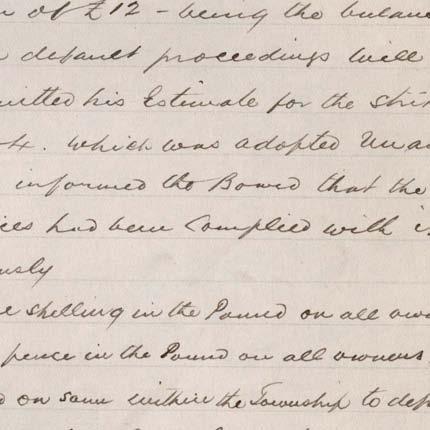 of £12 - being the balance
default proceedings will
mitted his Estimate for the
4. which was adopted Una
informed the Board that the
ices had been Complied with
usly
e shilling in the Pound on all own
pence in the Pound on all owners
on same within the Township to def